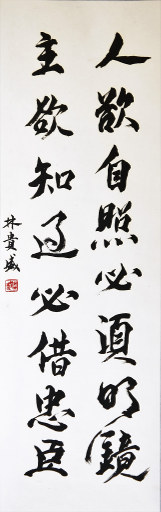 人欲自照必須明鏡
主欲知過必借忠臣
林貴盛